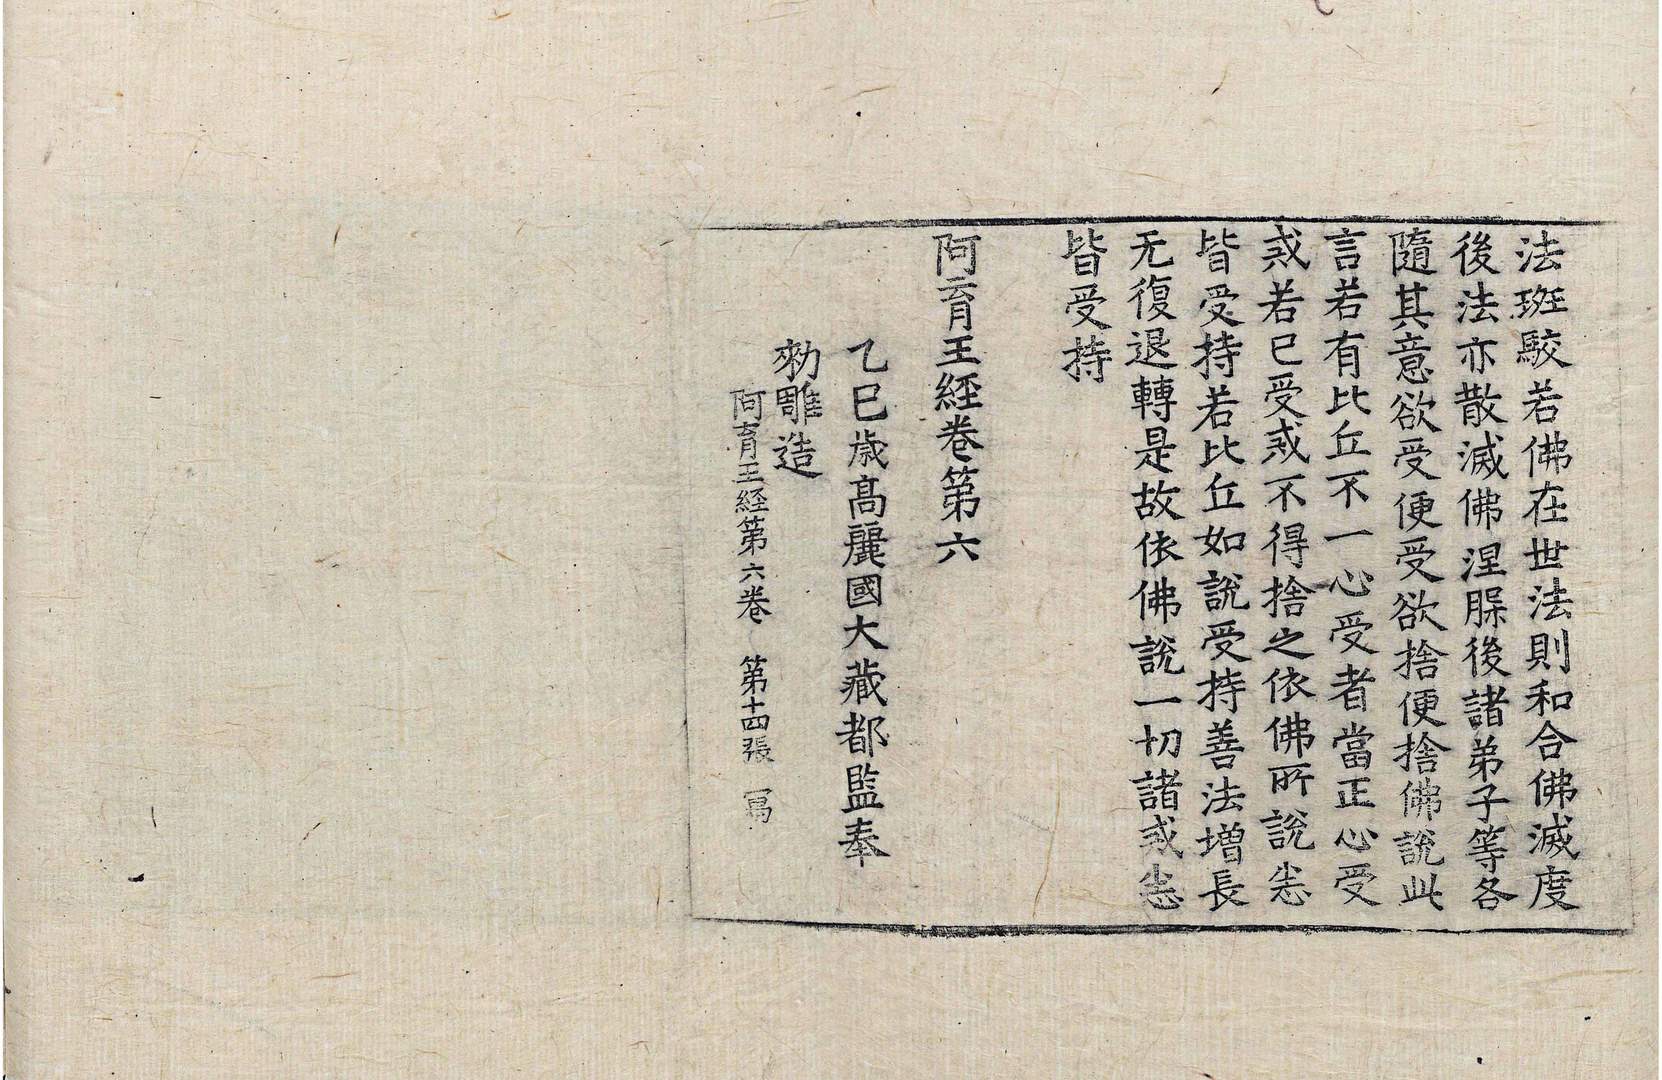 法斑駮若佛在世法則和合佛滅度
後法亦散滅佛涅脲後諸弟子等各
隨其意欲受便受欲捨便捨佛說此
言若有比丘不一心受者當正心受
戒若已受戒不得捨之依佛所說悉
皆受持若比丘如說受持善法增長
无復退轉是故依佛說一切諸戒悉
皆受持
阿育王經卷第六
乙巳歲高麗國大藏都監奉
勑雕造
阿育王経第六卷 第十四張 冩